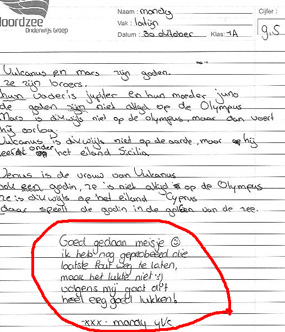 Noordzee
Onderwijs Groep
Naam : mandy
Vak : latijn
Datum : 30 oktober Klas : 1A
Cijfer :
9,5
Vulcanus en mars zijn goden.
ze zijn broers.
hun vader is jupiter en hun moeder juno
de goden zijn niet altijd op de Olympus
Mars is dikwijls niet op de olympus, maar dan voert
hij oorlog
Vulcanus is dikwijls niet op de aarde, maar hij
onder het eiland Sicilia.
Venus is de vrouw van Vulcanus
ook een godin, ze is niet altijd op de Olympus
ze is dikwijls op het eiland Cyprus
daar speelt de godin in de golven van de zee.
Goed gedaan meisje
ik heb nog geprobeerd die
laatste fout weg te laten,
maar het lukte niet :)
volgens mij gaat dit
heel erg goed lukken!
-xxx- mandy